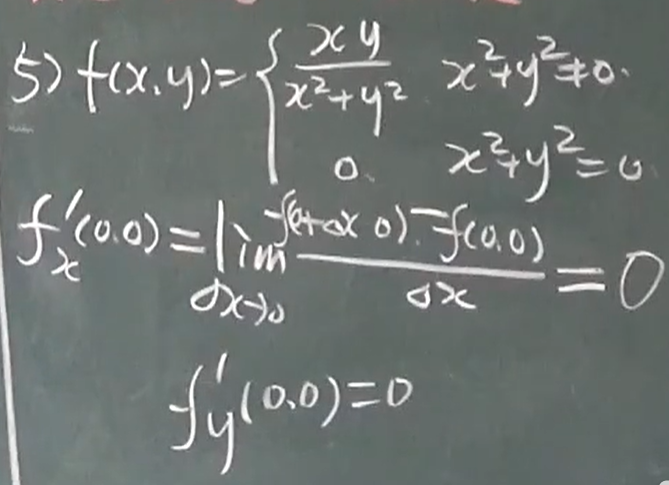 5) f(x,y)={ xy/(x²+y²) x²+y²≠0.
0. x²+y²=0
f'x(0,0)=lim Δx→0 (f(0+Δx 0)-f(0,0))/Δx =0
f'y(0,0)=0